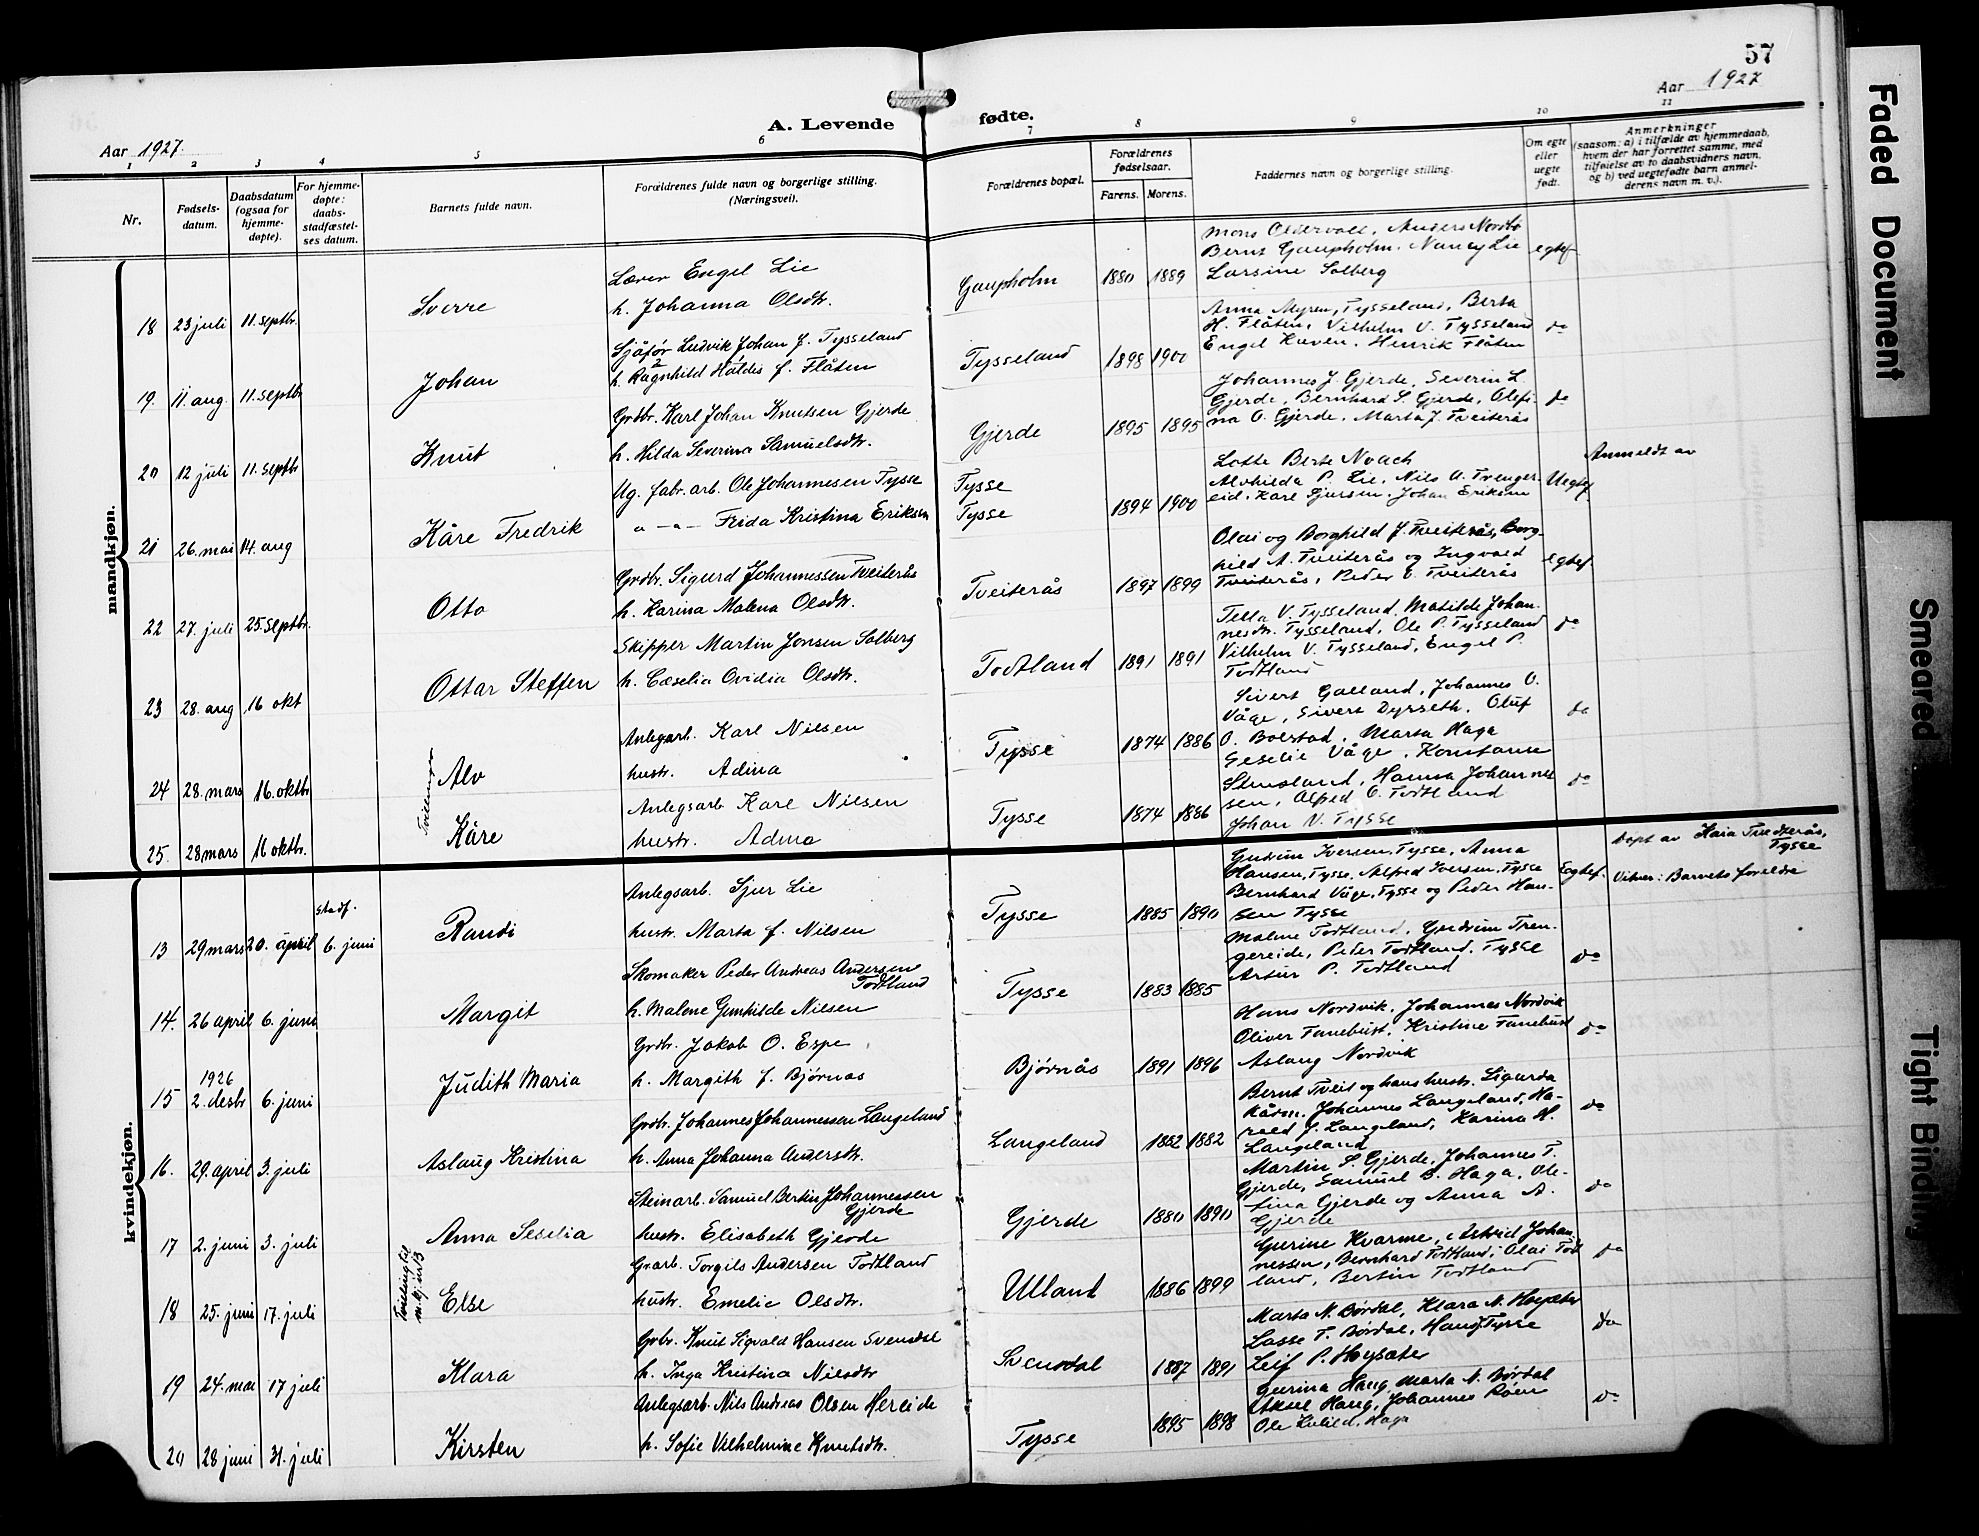 57
Aar 1927
Aar 1927.
A. Levende fødte.
1 2 3 4 5 6 7 8 9 10 11
Nr.
Fødsels-
datum.
Daabsdatum
(ogsaa for
hjemme-
døpte).
For hjemme-
døpte:
daabs-
stadfæstel-
ses datum.
Barnets fulde navn.
Forældrenes fulde navn og borgerlige stilling.
(Næringsvei).
Forældrenes bopæl.
Forældrenes
fødselsaar.
Farens. Morens.
Faddernes navn og borgerlige stilling.
Om egte
eller
uegte
født.
Anmerkninger
(saasom: a) i tilfælde av hjemmedaab,
hvem der har forrettet samme, med
tilføielse av to daabsvidners navn,
og b) ved uegtefødte barn anmel-
derens navn m. v.).
mandkjøn.
18 23 juli 11. septbr. Sverre
Lærer Engel Lie
h. Johanna Olsdtr.
Gaupholm 1880 1889
Mons Oldervoll, Anders Nordbø
Bernt Gaupholm, Nancy Lie
Larsine Solberg
egtef
19. 11. aug. 11. septbr Johan
Sjåfør Ludvik Johan f. Tysseland
h. Ragnhild Haldis f. Flåten
Tysseland 1898 1900
Anna Myren, Tysseland, Berta
H. Flåten, Vilhelm V. Tysseland
Engel Kaven, Henrik Flåten
do
20 12 juli 11. septbr Knut
Grdbr. Karl Johan Knutsen Gjerde
h. Hilda Severina Samuelsdtr.
Gjerde 1895 1895
Johannes J. Gjerde, Severin L.
Gjerde, Bernhard S. Gjerde, Olefi-
na O. Gjerde, Marta J. Tveiterås
do
21 26. mai 14. aug Kåre Fredrik
Ug. fabr. arb. Ole Johannesen Tysse
" - " - Frida Kristina Eriksen
Tysse
Tysse
1894 1900
Lotte Berte Noach
Alvhilda P. Lie, Nils A. Trenger-
eid, Karl Sjursen, Johan Eriksen
Uegtef
Anmeldt av
22 27. juli 25. septbr. Otto
Grdbr. Sigurd Johannessen Tveiterås
h. Karina Malena Olsdtr.
Tveiterås 1897 1899
Olai og Borghild J. Tveiterås, Borg-
hild A. Tveiterås og Ingvald
Tveiterås, Peder O. Tveiterås
egtef
23 28. aug 16 okt Ottar Steffen
Skipper Martin Jonsen Solberg
h. Cæselia Ovidia Olsdtr.
Todtland 1891 1891
Tella V. Tysseland, Matilde Johan-
nesdtr. Tysseland, Ole P. Tysseland
Vilhelm V. Tysseland, Engel P.
Todtland
do
24 28. mars 16. oktbr Alv
Tvillinger
Anlegsarb. Karl Nilsen
hustr. Adina
Tysse 1874 1886
Sivert Galland, Johannes O.
Våge, Sivert Dyrseth, Oluf
O. Bolstad, Marta Haga
do
25. 28 mars 16 oktbr. Kåre
Anlegsarb Karl Nilsen
hustr. Adina
Tysse 1874 1886
Geselie Våge, Konstanse
Stensland, Hanna Johannes
sen, Alfred O. Todtland
Johan N. Tysse
do
kvindekjøn.
13 29 mars 20. april
stadf.
6. juni
Randi
Anlegsarb. Sjur Lie
hustr. Marta f. Nilsen
Tysse 1885 1890
Gudrun Iversen, Tysse, Anna
Hansen, Tysse, Alfred Iversen, Tysse
Bernhard Våge, Tysse og Peder Han-
sen Tysse
Egtef.
Døpt av Kaia Tvedterås,
Tysse
Vitner: Barnets foreldre
14. 26 april 6. juni Margit
Skomaker Peder Andreas Andersen
Todtland
h. Malene Gunhilde Nilsen
Tysse 1883 1885
Malene Todtland, Gudrun Tren-
gereide, Peder Todtland, Tysse
Artur P. Todtland
do
15
1926
2. desbr 6. juni Judith Maria
Grdbr. Jakob O. Espe
h. Margith f. Bjørnås
Bjørnås 1891 1896
Hans Nordvik, Johannes Nordvik
Oliver Tanebust, Kristine Tanebust
Aslaug Nordvik
do
16. 29. april 3. juli Aslaug Kristina
Grdbr. Johannes Johannessen Langeland
h. Anna Johanna Andersdtr.
Langeland 1882 1882
Bernt Tveit og hans hustr. Sigurda
Kåren, Johannes Langeland, Ha-
rald J. Langeland, Karina H.
Langeland
do
17 2. juni 3. juli Anna Seselia
Steinarb. Samuel Bertin Johannessen
Gjerde
hustr. Elisabeth Gjerde
Gjerde 1880 1890
Martin S. Gjerde, Johannes T.
Gjerde, Samuel B. Haga, Ole-
sina Gjerde og Anna A.
Gjerde
do
18 25. juni 17. juli Else
Tvilling til
m. kj. nr 13
Grarb. Torgils Andersen Todtland
hustr. Emelie Olsdtr.
Ulland 1886 1899
Gurine Kvarme, Astrid Johan-
nessen, Bernhard Todtland, Olai Todt
land, Bertin Todtland
do
19 24. mai 17 juli Klara
Grbr. Knut Sigvald Hansen Svendal
h. Inga Kristina Nilsdtr
Svendal 1887 1891
Marta N. Børdal, Klara N. Høysæter
Lasse T. Børdal, Hans J. Tysse
Leif P. Høysæter
do
20 28 juni 31. juli Kirsten
Anlegsarb. Nils Andreas Olsen Hereide
h. Sofie Vilhelmine Knutsdtr.
Tysse 1895 1898
Gurina Haug, Marta N. Børdal
Haug, Johannes Røen
Ole Haga
do
Faded Document
Smeared
Tight Binding